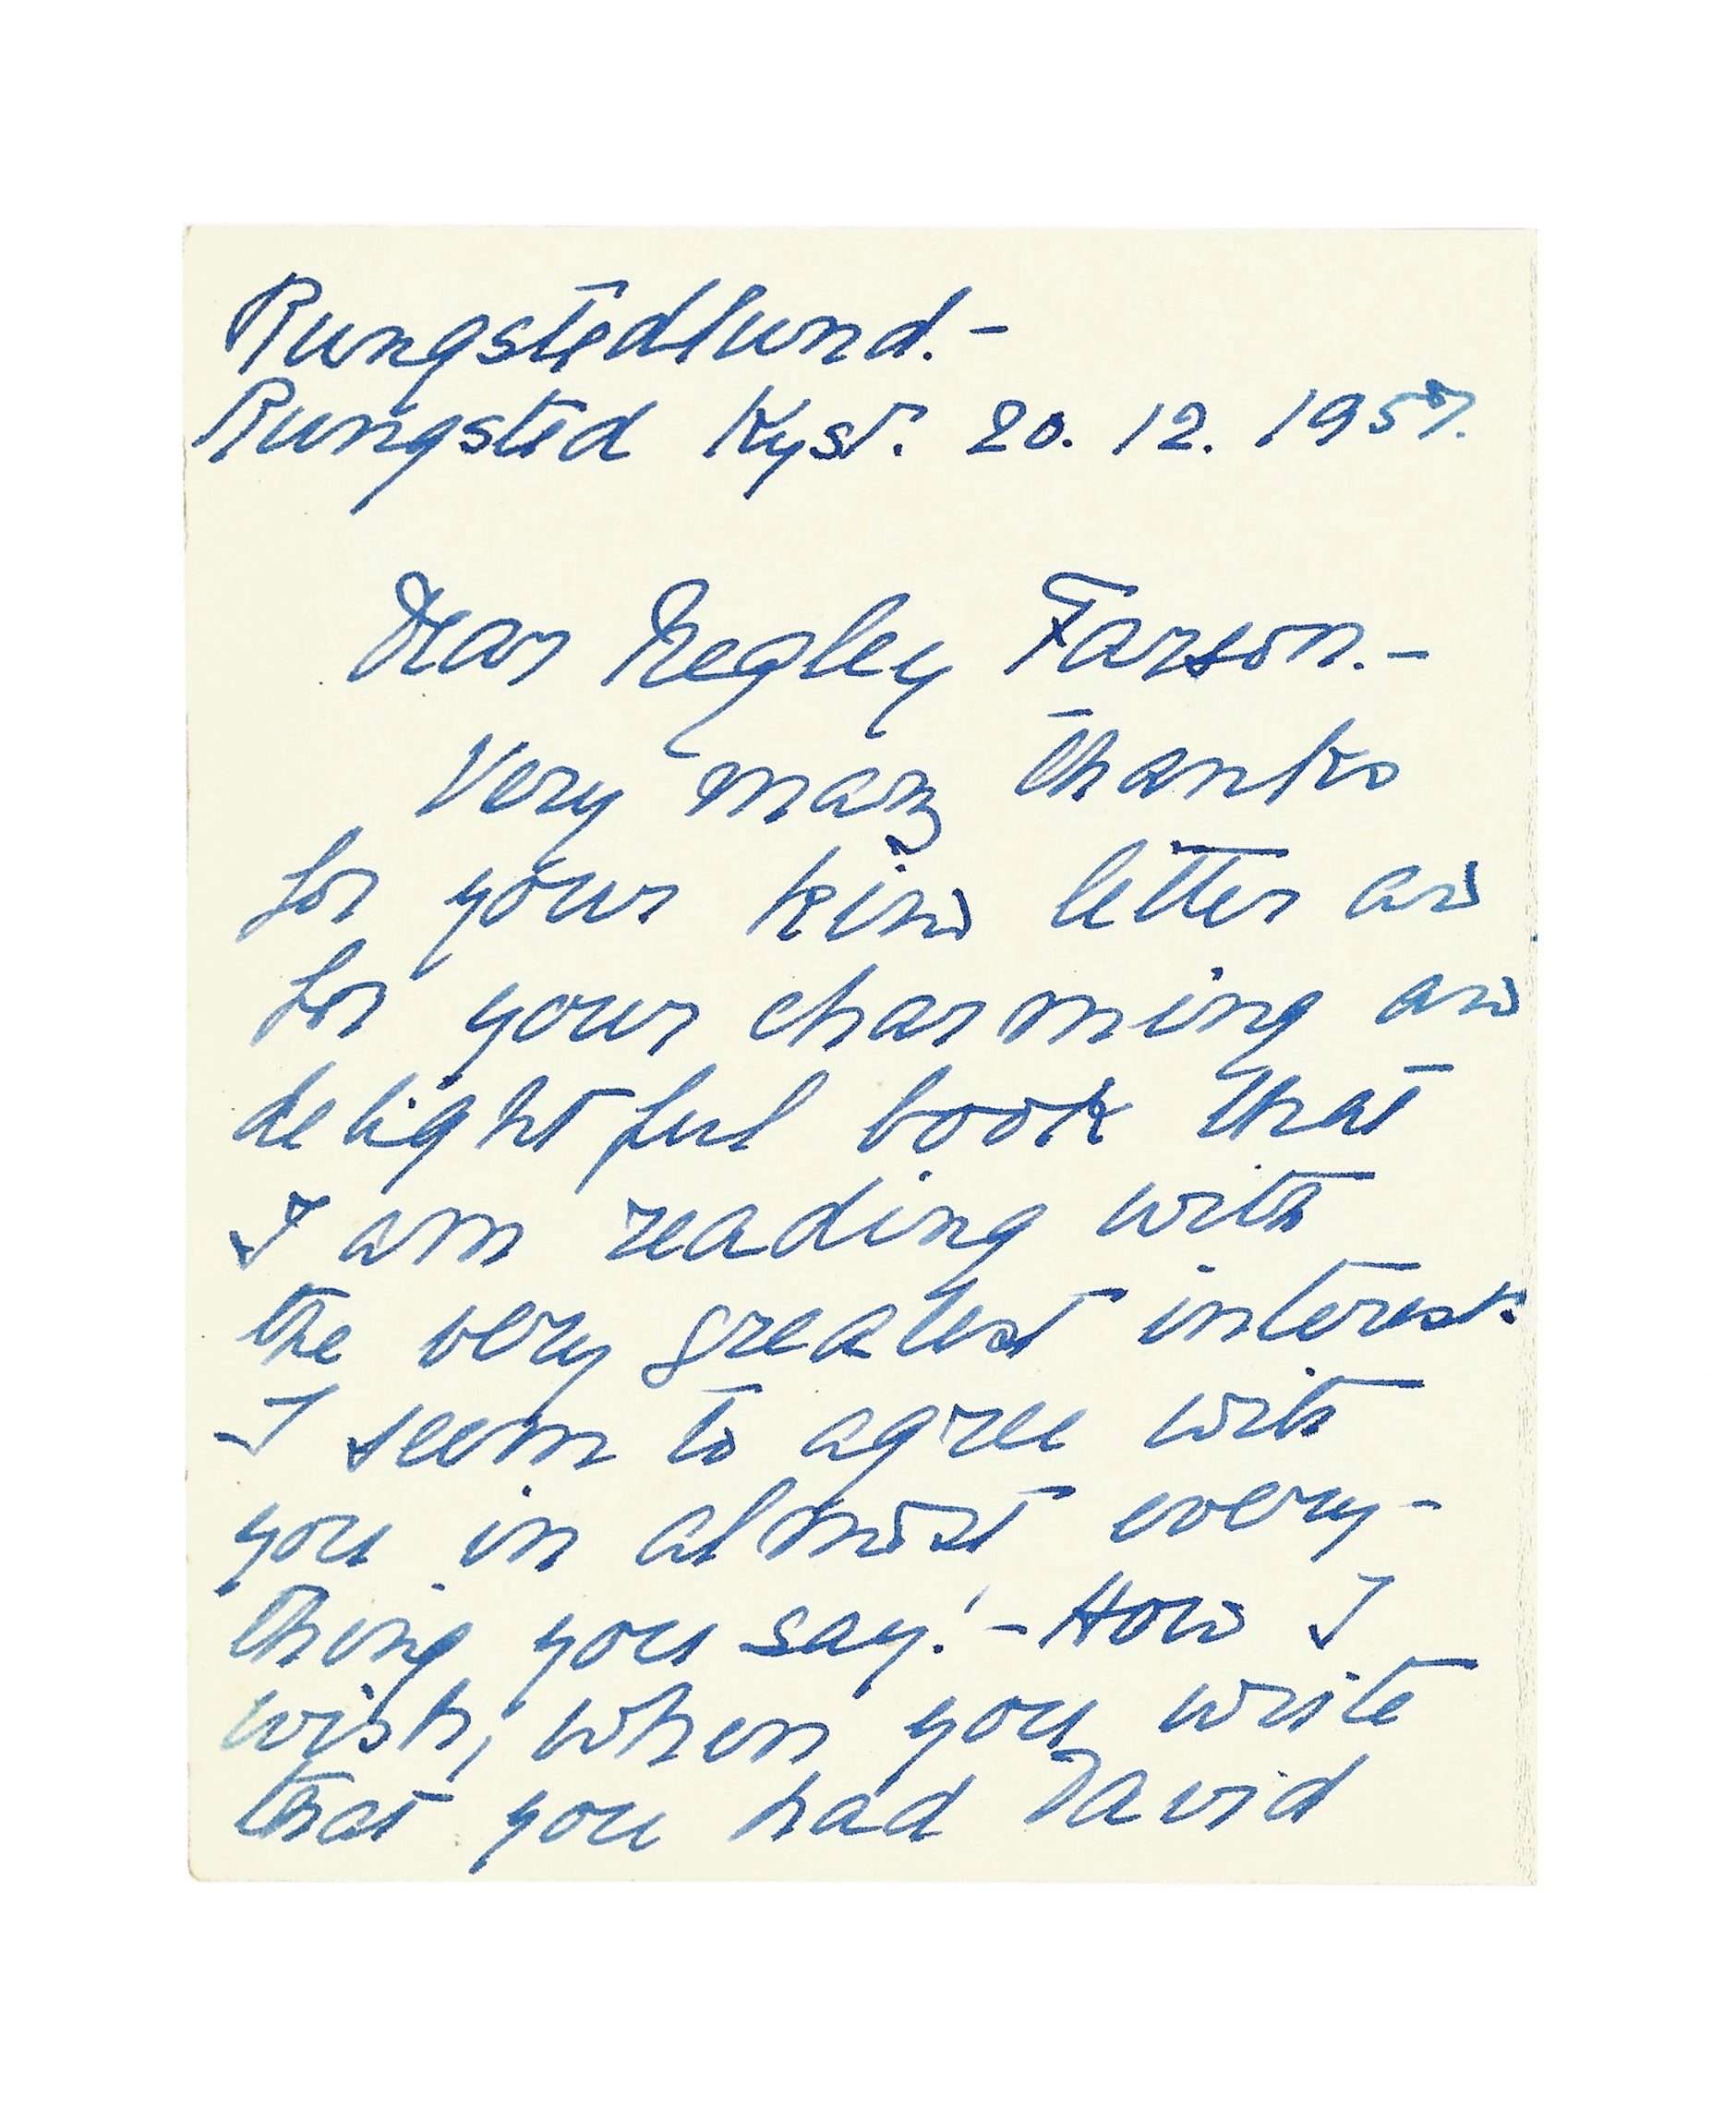 Rungstedlund.-
Rungsted Kyst. 20. 12. 1957.
Dear Negley Farson.-
Very many thanks
for your kind letter and
for your charming and
delightful book that
I am reading with
the very greatest interest.
I seem to agree with
you in almost every-
thing you say! - How I
wish, when you write
that you had David